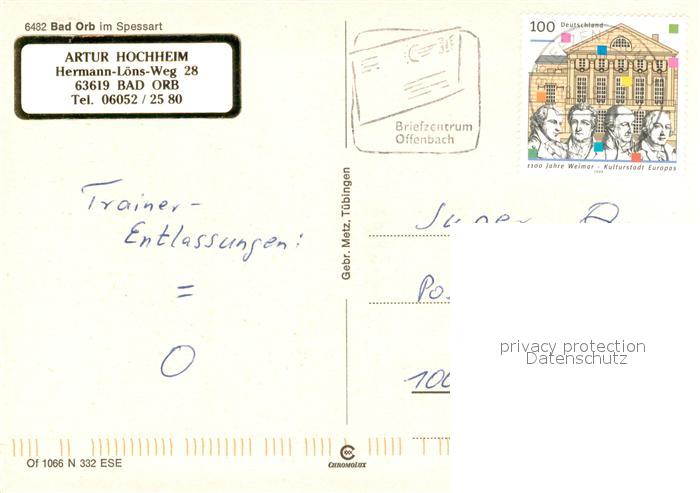 6482 Bad Orb im Spessart
ARTUR HOCHHEIM
Hermann-Löns-Weg 28
63619 BAD ORB
Tel. 06052 / 25 80
Briefzentrum
Offenbach
100 Deutschland
1100 Jahre Weimar - Kulturstadt Europas
1999
Trainer-
Entlassungen:
=
0
Gebr. Metz, Tübingen
Super
Po
100
privacy protection
Datenschutz
Of 1066 N 332 ESE
CHROMOLUX